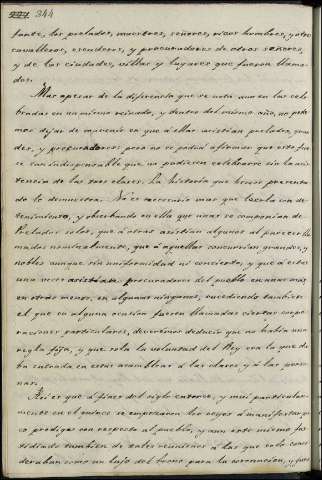 344
tante, los prelados, maestres, señores, ricos hombres, y otros
cavalleros, escuderos, y procuradores de otros señores,
y de las ciudades, villas y lugares que fueron llama-
dos.
Mas apesar de la diferencia que se nota aun en las cele-
bradas en un mismo reinado, y dentro del mismo año, no pode-
mos dejar de convenir en que á ellas asistian prelados, gran-
des, y procuradores: pero no se podrá afirmar que esto fue-
se tan indispensable que no pudiesen celebrarse sin la asis-
tencia de las tres clases. La historia que hemos presenta-
do lo demuestra. No es necesario mas que leerla con de-
tenimiento, y observando en ella que unas se componian de
Prelados solos, que á otras asistian algunos al parecer lla-
mados nominalmente, que á aquellas concurrian grandes, y
nobles aunque sin uniformidad ni concierto, y que á estas
una veces asistian procuradores del pueblo en unas mas
en otras menos, en algunas ningunos, sucediendo tambien
el que en alguna ocasion fueron llamadas ciertas corpo-
raciones particulares, deveremos deducir que no habia una
regla fija, y que sola la voluntad del Rey era la que de-
ba entrada en estas asambleas á las clases, y á las perso-
nas.
Asi es que á fines del siglo catorce, y mui particular-
mente en el quince se empezaron los reyes á manifestar po-
co prodigos con respecto al pueblo, y aun este mismo fas-
tidiado tambien de tales reuniones á las que solo consi-
deraban como un lujo del trono para la coronacion, y jura